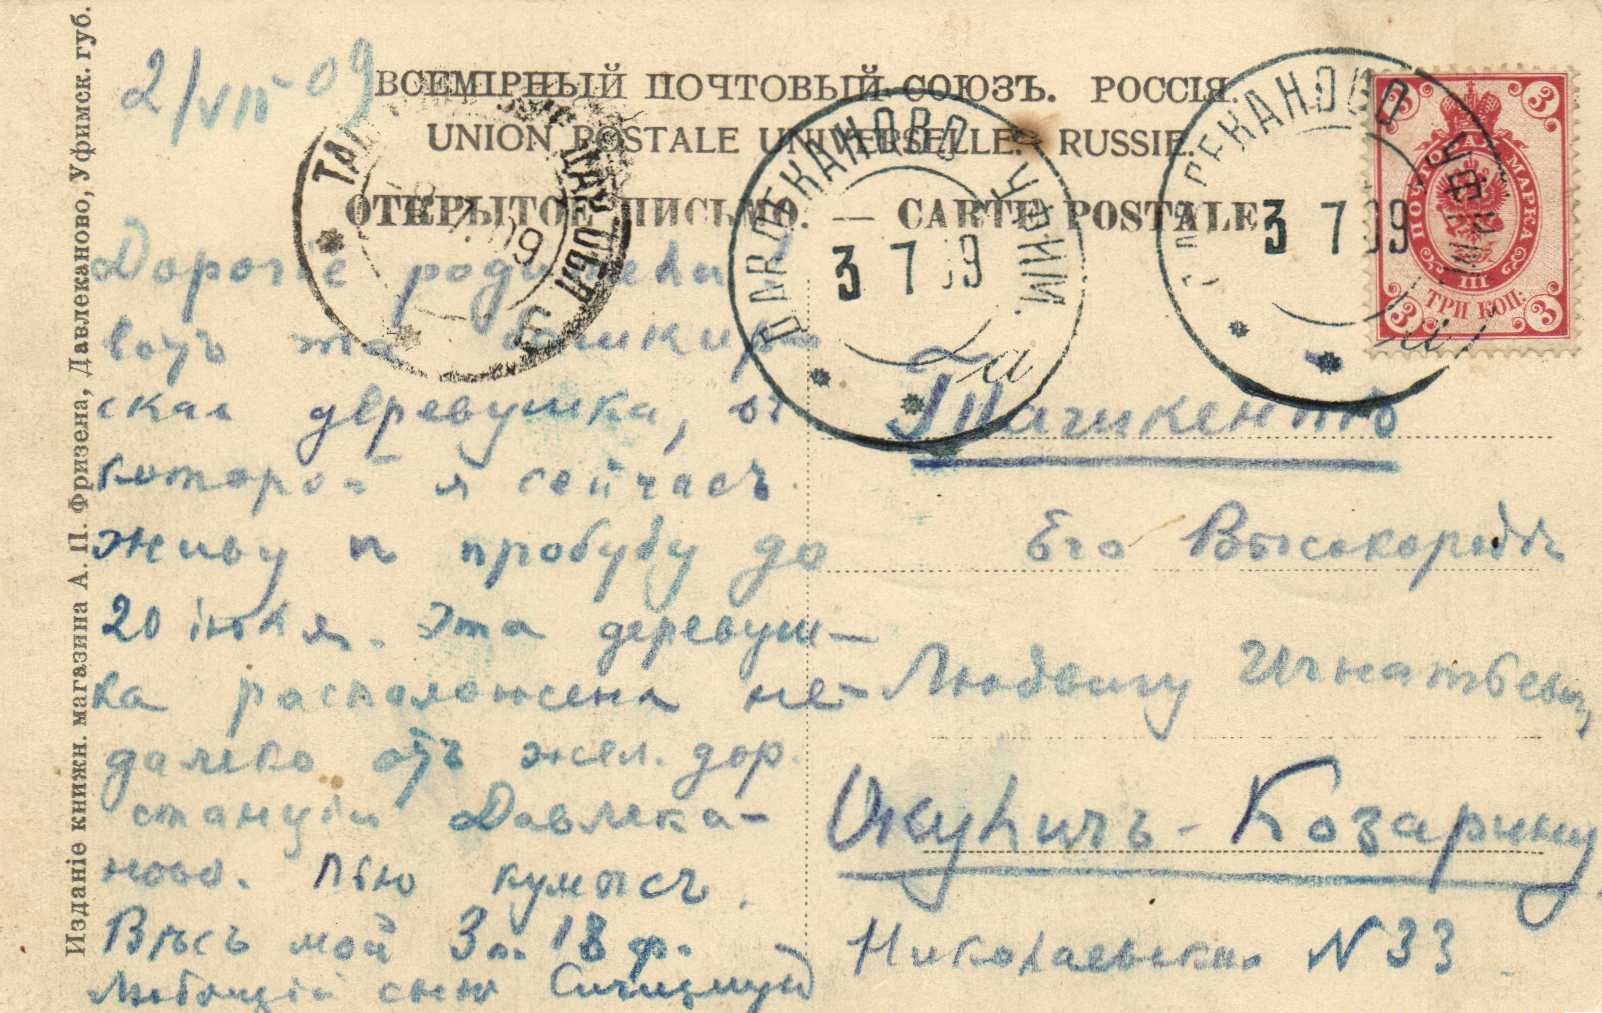 2/VII-09
ВСЕМІРНЫЙ ПОЧТОВЫЙ СОЮЗЪ. РОССІЯ.
UNION POSTALE UNIVERSELLE. RUSSIE.
ОТКРЫТОЕ ПИСЬМО. — CARTE POSTALE
ДАВЛЕКАНОВО УФИМ.
3 7 09
ДАВЛЕКАНОВО УФИМ.
3 7 09
ПОЧТОВАЯ МАРКА
3 3 3 3
III
ТРИ КОП:
Дорогіе родители!
вотъ та башкир-
ская деревушка, въ
которой я сейчасъ
живу и пробуду до
20 іюля. Эта деревуш-
ка расположена не-
далеко отъ жел. дор.
станціи Давлека-
ново. Пью кумысъ.
Вѣсъ мой 3 п. 18 ф.
Любящій сынъ Сигизмунд
Ташкентъ
Его Высокородію
Людвигу Игнатьевичу
Окуличъ-Козарину
Николаевская N 33
Изданіе книжн. магазина А. П. Фризена, Давлеканово, Уфимск. губ.